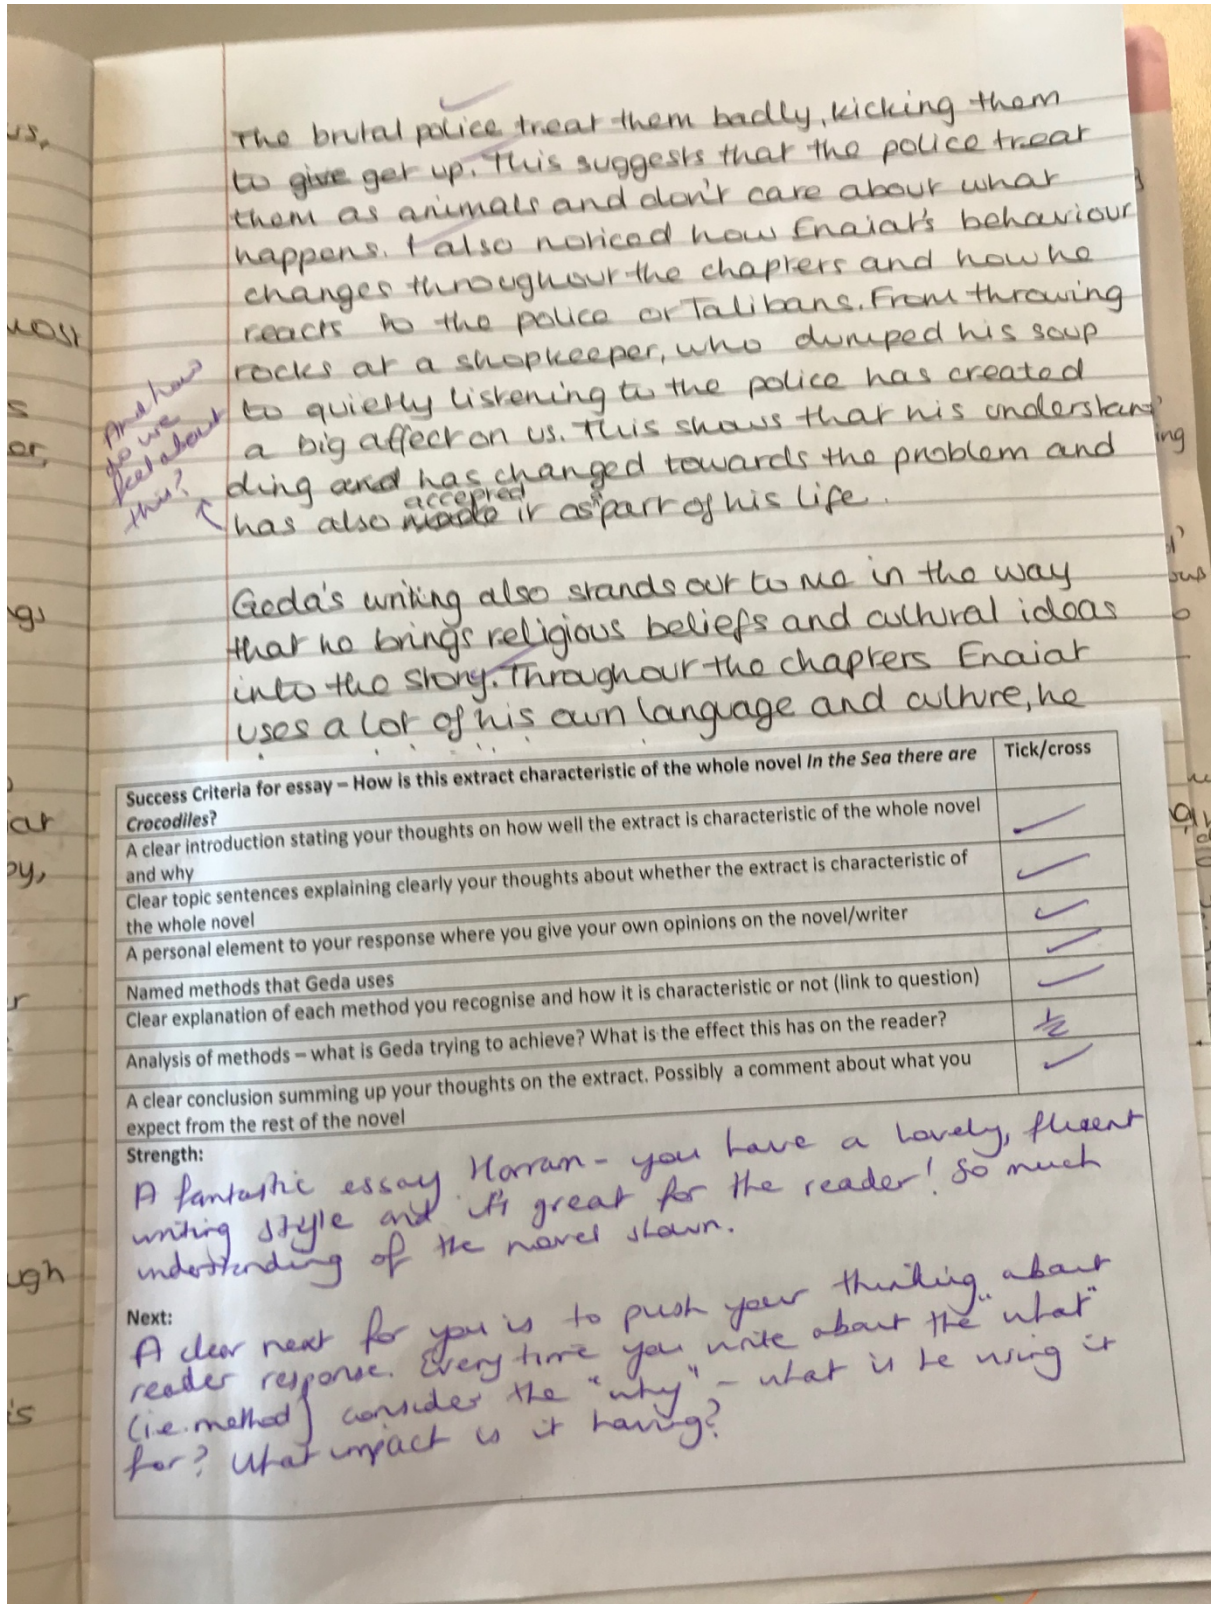 The brutal police treat them badly, kicking them
to give get up. This suggests that the police treat
them as animals and don't care about what
happens. I also noticed how Enaiat's behaviour
changes throughout the chapters and how he
reacts to the police or Talibans. From throwing
rocks at a shopkeeper, who dumped his soup
to quietly listening to the police has created
a big affect on us. This shows that his understan
ding and has changed towards the problem and
has also made accepted it as part of his life.
And how
do we
feel about
this?
Geda's writing also stands out to me in the way
that he brings religious beliefs and cultural ideas
into the story. Throughout the chapters Enaiat
uses a lot of his own language and culture, he
Success Criteria for essay – How is this extract characteristic of the whole novel In the Sea there are
Crocodiles?
Tick/cross
A clear introduction stating your thoughts on how well the extract is characteristic of the whole novel
and why
Clear topic sentences explaining clearly your thoughts about whether the extract is characteristic of
the whole novel
A personal element to your response where you give your own opinions on the novel/writer
Named methods that Geda uses
Clear explanation of each method you recognise and how it is characteristic or not (link to question)
Analysis of methods – what is Geda trying to achieve? What is the effect this has on the reader?
½
A clear conclusion summing up your thoughts on the extract. Possibly a comment about what you
expect from the rest of the novel
Strength:
A fantastic essay - you have a lovely, fluent
writing style and it's great for the reader! So much
understanding of the novel shown.
Next:
A clear next for you is to push your thinking about
reader response. Every time you write about the "what"
(i.e. method) consider the "why" - what is he using it
for? What impact is it having?
us,
s
or,
ngs
ar
r
ugh
is
ing